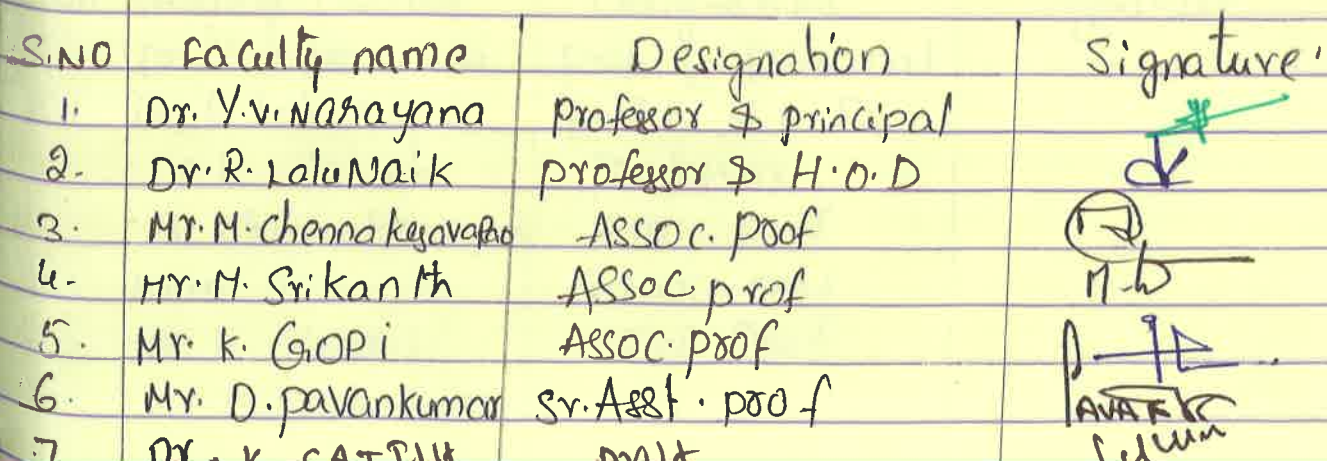 S.NO Faculty name Designation Signature
1. Dr. Y.V. Narayana professor & principal
2. Dr. R. Lalu Naik professor & H.O.D
3. Mr. M. Chennakesavarao Assoc. prof
4. Mr. M. Srikanth Assoc prof M.
5. Mr. K. GOPi Assoc. prof
6. Mr. D. pavankumar Sr. Asst. prof
7. Dr. K.